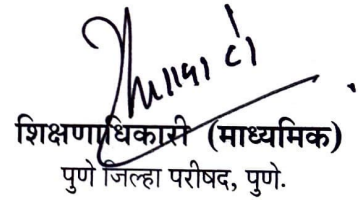 शिक्षणाधिकारी (माध्यमिक)
पुणे जिल्हा परीषद, पुणे.